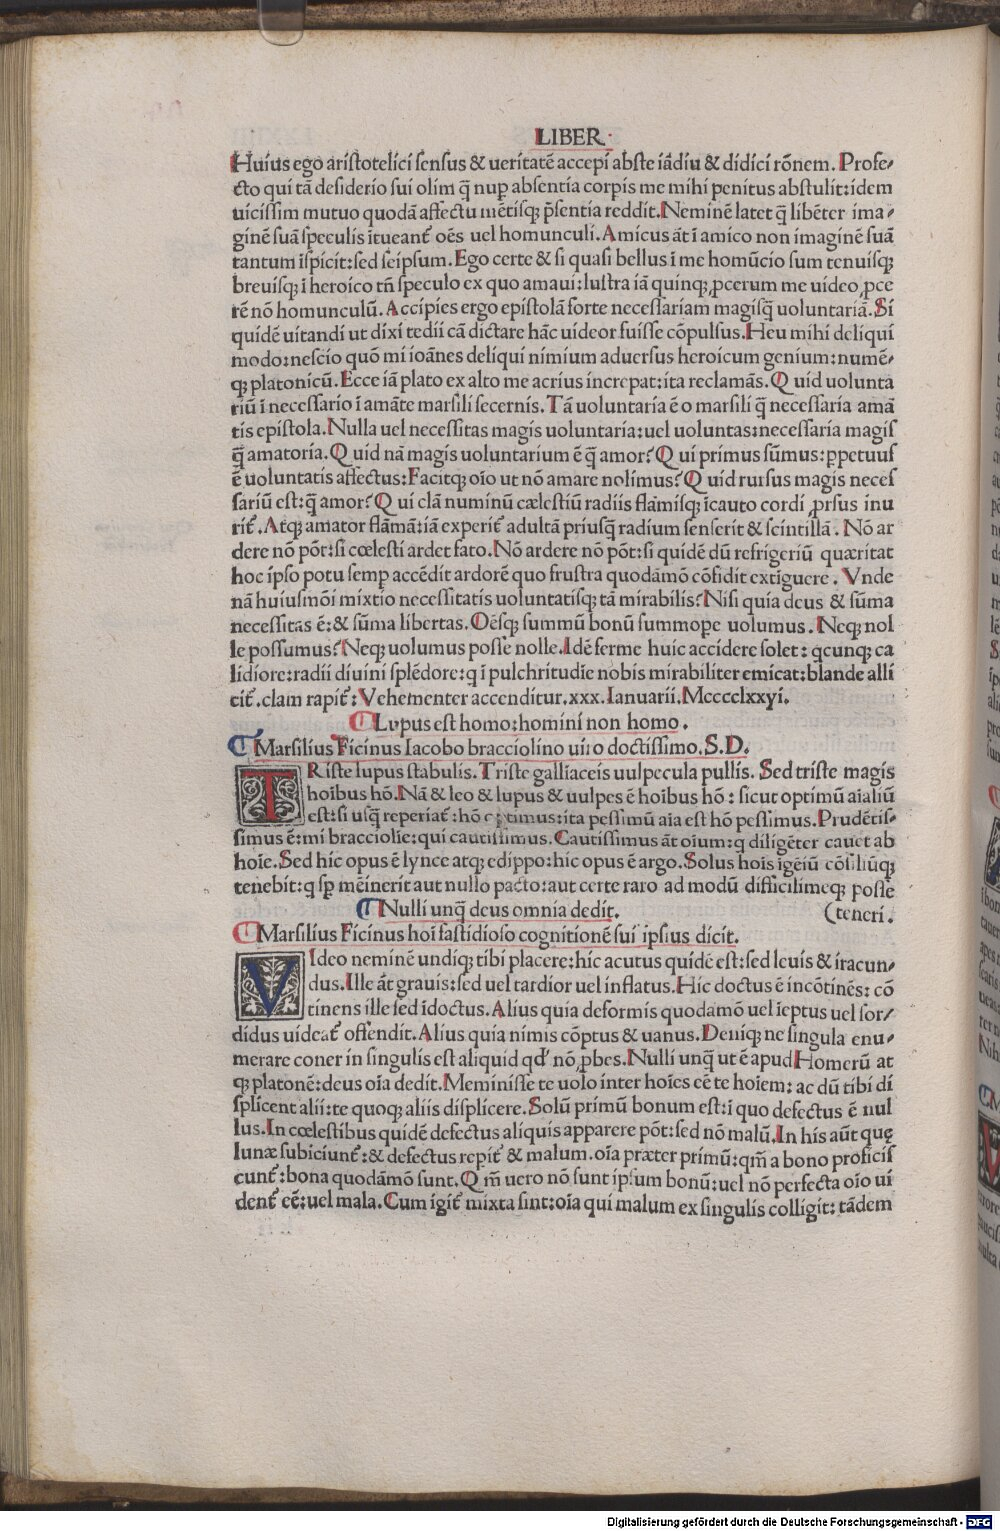 LIBER
Huius ego aristotelici sensus & ueritatē accepi abste iādiu & didici rōnem. Profe⸗
cto qui tā desiderio sui olim q̄ nup absentia corpis me mihi penitus abstulit: idem
uicissim mutuo quodā affectu mētisq; p̄sentia reddit. Neminē latet q̄ libēter ima⸗
ginē suā speculis ītueant᷑ oēs uel homunculi. Amicus āt ī amico non imaginē suā
tantum īspicit: sed seipsum. Ego certe & si quasi bellus ī me homūcio sum tenuisq;
breuisq; ī heroico tn̄ speculo ex quo amaui: lustra iā quinq; ꝓcerum me uideo ꝓce
rē nō homunculū. Accipies ergo epistolā forte necessariam magisq̄ uoluntariā. Si
quidē uitandi ut dixi tedii cā dictare hāc uideor fuisse cōpulsus. Heu mihi deliqui
modo: nescio quō mi ioānes deliqui nimium aduersus heroicum genium: numē⸗
q; platonicū. Ecce iā plato ex alto me acrius increpat: ita reclamās. Quid uolunta
riū ī necessario ī amāte marsili secernis. Tā uoluntaria ē o marsili q̄ necessaria amā
tis epistola. Nulla uel necessitas magis uoluntaria: uel uoluntas: necessaria magis
q̄ amatoria. Quid nā magis uoluntarium ē q̄ amor? Qui primus sūmus: ꝑpetuus
ē uoluntatis affectus: Facitq; oīo ut nō amare nolimus? Quid rursus magis neces
sariū est: q̄ amor? Qui clā numinū cælestiū radiis flāmisq; īcauto cordi ꝓrsus inu
rit᷑. Atq; amator flāmā: iā experit᷑ adultā priusq̄ radium senserit & scintillā. Nō ar
dere nō pōt: si cœlesti ardet fato. Nō ardere nō pōt: si quidē dū refrigeriū quæritat
hoc ipso potu semp accēdit ardorē quo frustra quodāmō cōfidit extiguere. Vnde
nā huiusmōi mixtio necessitatis uoluntatisq; tā mirabilis? Nisi quia deus & sūma
necessitas ē: & sūma libertas. Oēsq; summū bonū summope uolumus. Neq; nol
le possumus? Neq; uolumus posse nolle. Idē ferme huic accidere solet: qcunq; ca
lidiore: radii diuini splēdore: q ī pulchritudie nobis mirabiliter emicat: blande alli
cit᷑. clam rapit᷑: Vehementer accenditur. xxx. Ianuarii. Mcccclxxyi.
Lupus est homo: homini non homo.
Marsilius Ficinus Iacobo bracciolino uiro doctissimo. S. D.
TRiste lupus stabulis. Triste galliaceis uulpecula pullis. Sed triste magis
hoibus hō. Nā & leo & lupus & uulpes ē hoibus hō: sicut optimū aīaliū
est: si usq̄ reperiat᷑: hō optimus: ita pessimū aīa est hō pessimus. Prudētis⸗
simus ē: mi bracciolie: qui cautissimus. Cautissimus āt oium: q diligēter cauet ab
hoīe. Sed hic opus ē lynce atq; edippo: hic opus ē argo. Solus hois īgeiū cōsiliūq;
tenebit: q sp̄ mēinerit aut nullo pacto: aut certe raro ad modū difficilimeq; posse
Nulli unq̄ deus omnia dedit. (teneri.
Marsilius Ficinus hoī fastidioso cognitionē sui ipsius dicit.
VIdeo neminē undiq; tibi placere: hic acutus quidē est: sed leuis & iracun⸗
dus. Ille āt grauis: sed uel tardior uel inflatus. Hic doctus ē incōtinēs: cō
tinens ille sed īdoctus. Alius quia deformis quodamō uel ieptus uel sor⸗
didus uideat᷑ offendit. Alius quia nimis cōptus & uanus. Deniq; ne singula enu⸗
merare coner in singulis est aliquid qd' nō ꝓbes. Nulli unq̄ ut ē apud Homerū at
q; platonē: deus oīa dedit. Meminisse te uolo inter hoīes eē te hoīem: ac dū tibi di
splicent alii: te quoq; aliis displicere. Solū primū bonum est: ī quo defectus ē nul
lus. In cœlestibus quidē defectus aliquis apparere pōt: sed nō malū. In his aūt quę
lunæ subiciunt᷑: & defectus repit᷑ & malum. oīa præter primū: qm̄ a bono proficis
cunt᷑: bona quodāmō sunt. Qm̄ uero nō sunt ipsum bonū: uel nō perfecta oīo ui
dent᷑ eē: uel mala. Cum igit᷑ mixta sint: oīa qui malum ex singulis colligit: tādem
Digitalisierung gefördert durch die Deutsche Forschungsgemeinschaft - DFG